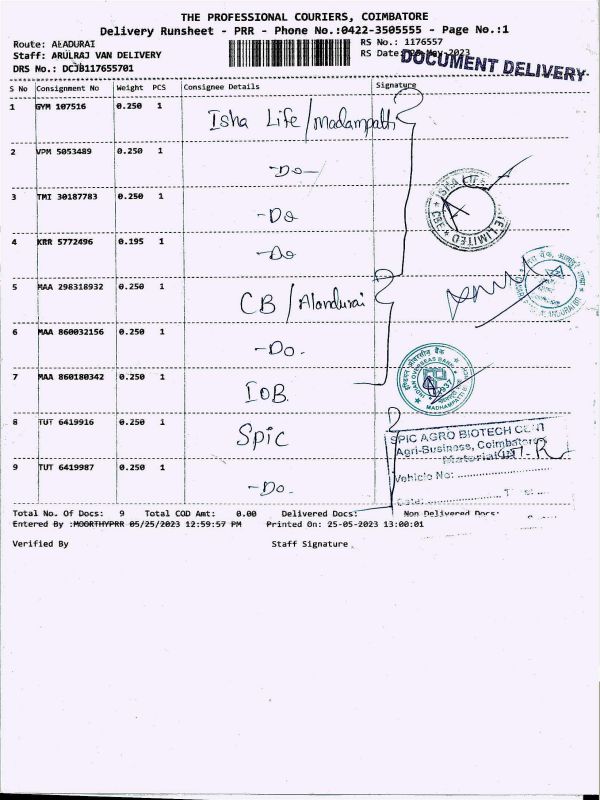 THE PROFESSIONAL COURIERS, COIMBATORE
Delivery Runsheet - PRR - Phone No.:0422-3505555 - Page No.:1
Route: ALADURAI
RS No.: 1176557
Staff: ARULRAJ VAN DELIVERY
RS Date: 25-May-2023
DOCUMENT DELIVERY
DRS No.: DCJB117655701
S No Consignment No Weight PCS Consignee Details Signature
1 GYM 107516 0.250 1 Isha Life / Madampatti
2 VPM 5053489 0.250 1 -Do-
3 TMI 30187783 0.250 1 -Do
4 KRR 5772496 0.195 1 -Do
5 MAA 298318932 0.250 1 CB / Alandurai
6 MAA 860032156 0.250 1 -Do.
7 MAA 860180342 0.250 1 IOB
INDIAN OVERSEAS BANK
8 TUT 6419916 0.250 1 Spic
SPIC AGRO BIOTECH
Agri-Business, Coimbatore
Material
Vehicle No:
9 TUT 6419987 0.250 1 -Do.
Date:
Total No. Of Docs: 9 Total COD Amt: 0.00 Delivered Docs: Non Delivered Docs:
Entered By :MOORTHYPRR 05/25/2023 12:59:57 PM Printed On: 25-05-2023 13:00:01
Verified By Staff Signature